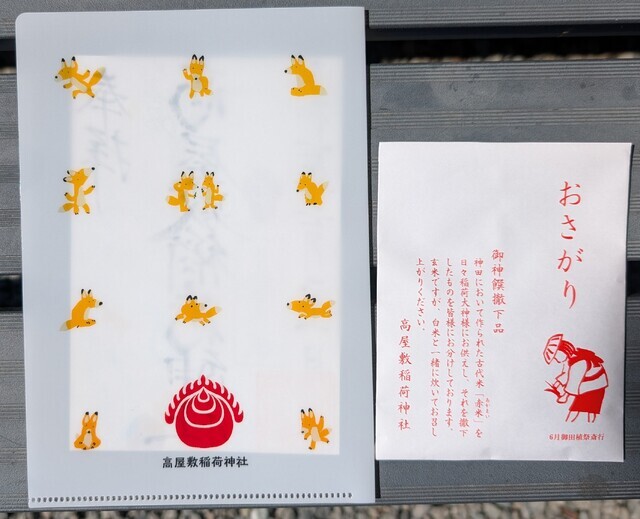 高屋敷稲荷神社
おさがり
御神饌撤下品
神田において作られた古代米「赤米」を
日々稲荷大神様にお供えし、それを撤下
したものを皆様にお分けしております。
玄米ですが、白米と一緒に炊いてお召し
上がりください。
高屋敷稲荷神社
6月御田植祭斎行